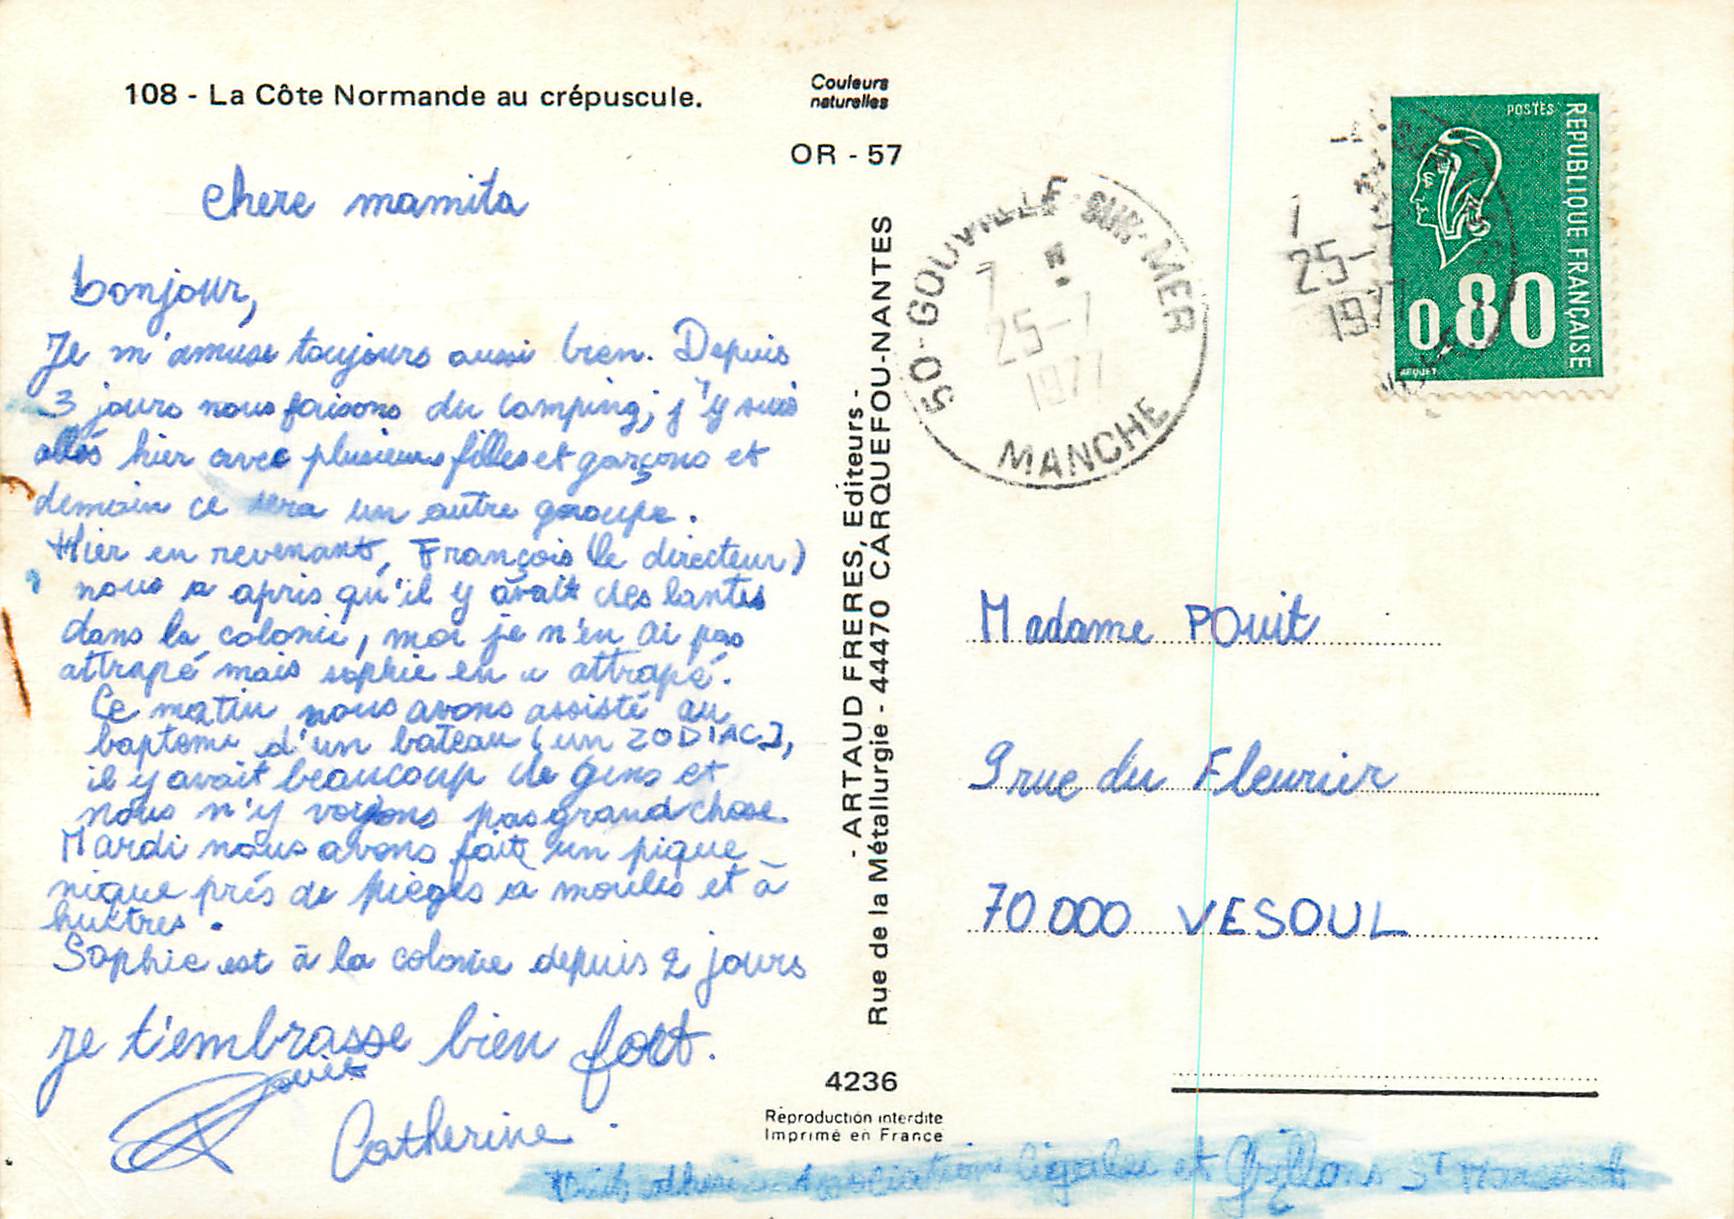 108 - La Côte Normande au crépuscule.
Couleurs
naturelles
OR - 57
chere mamita
bonjour,
Je m'amuse toujours aussi bien. Depuis
3 jours nous faisons du camping; j'y suis
allés hier avec plusieurs filles et garçons et
demain ce sera un autre groupe.
Hier en revenant, François (le directeur)
nous a apris qu'il y avait des lantes
dans la colonie, moi je n'en ai pas
attrapé mais sophie en a attrapé.
Ce matin nous avons assisté au
bapteme d'un bateau (un ZODIAC),
il y avait beaucoup de gens et
nous n'y voyons pas grand chose.
Mardi nous avons fait un pique
nique prés de pièges à moules et à
huitres.
Sophie est à la colonie depuis 2 jours
je t'embrasse bien fort.
Pouit
Catherine
- ARTAUD FRERES, Editeurs -
Rue de la Métallurgie - 44470 CARQUEFOU-NANTES
4236
Reproduction interdite
Imprimé en France
50-GOUVILLE-SUR-MER
7 H
25-7
1977
MANCHE
7
25-7
1977
POSTES
REPUBLIQUE FRANÇAISE
0,80
Madame POuit
9 rue du Fleurier
70000 VESOUL
et